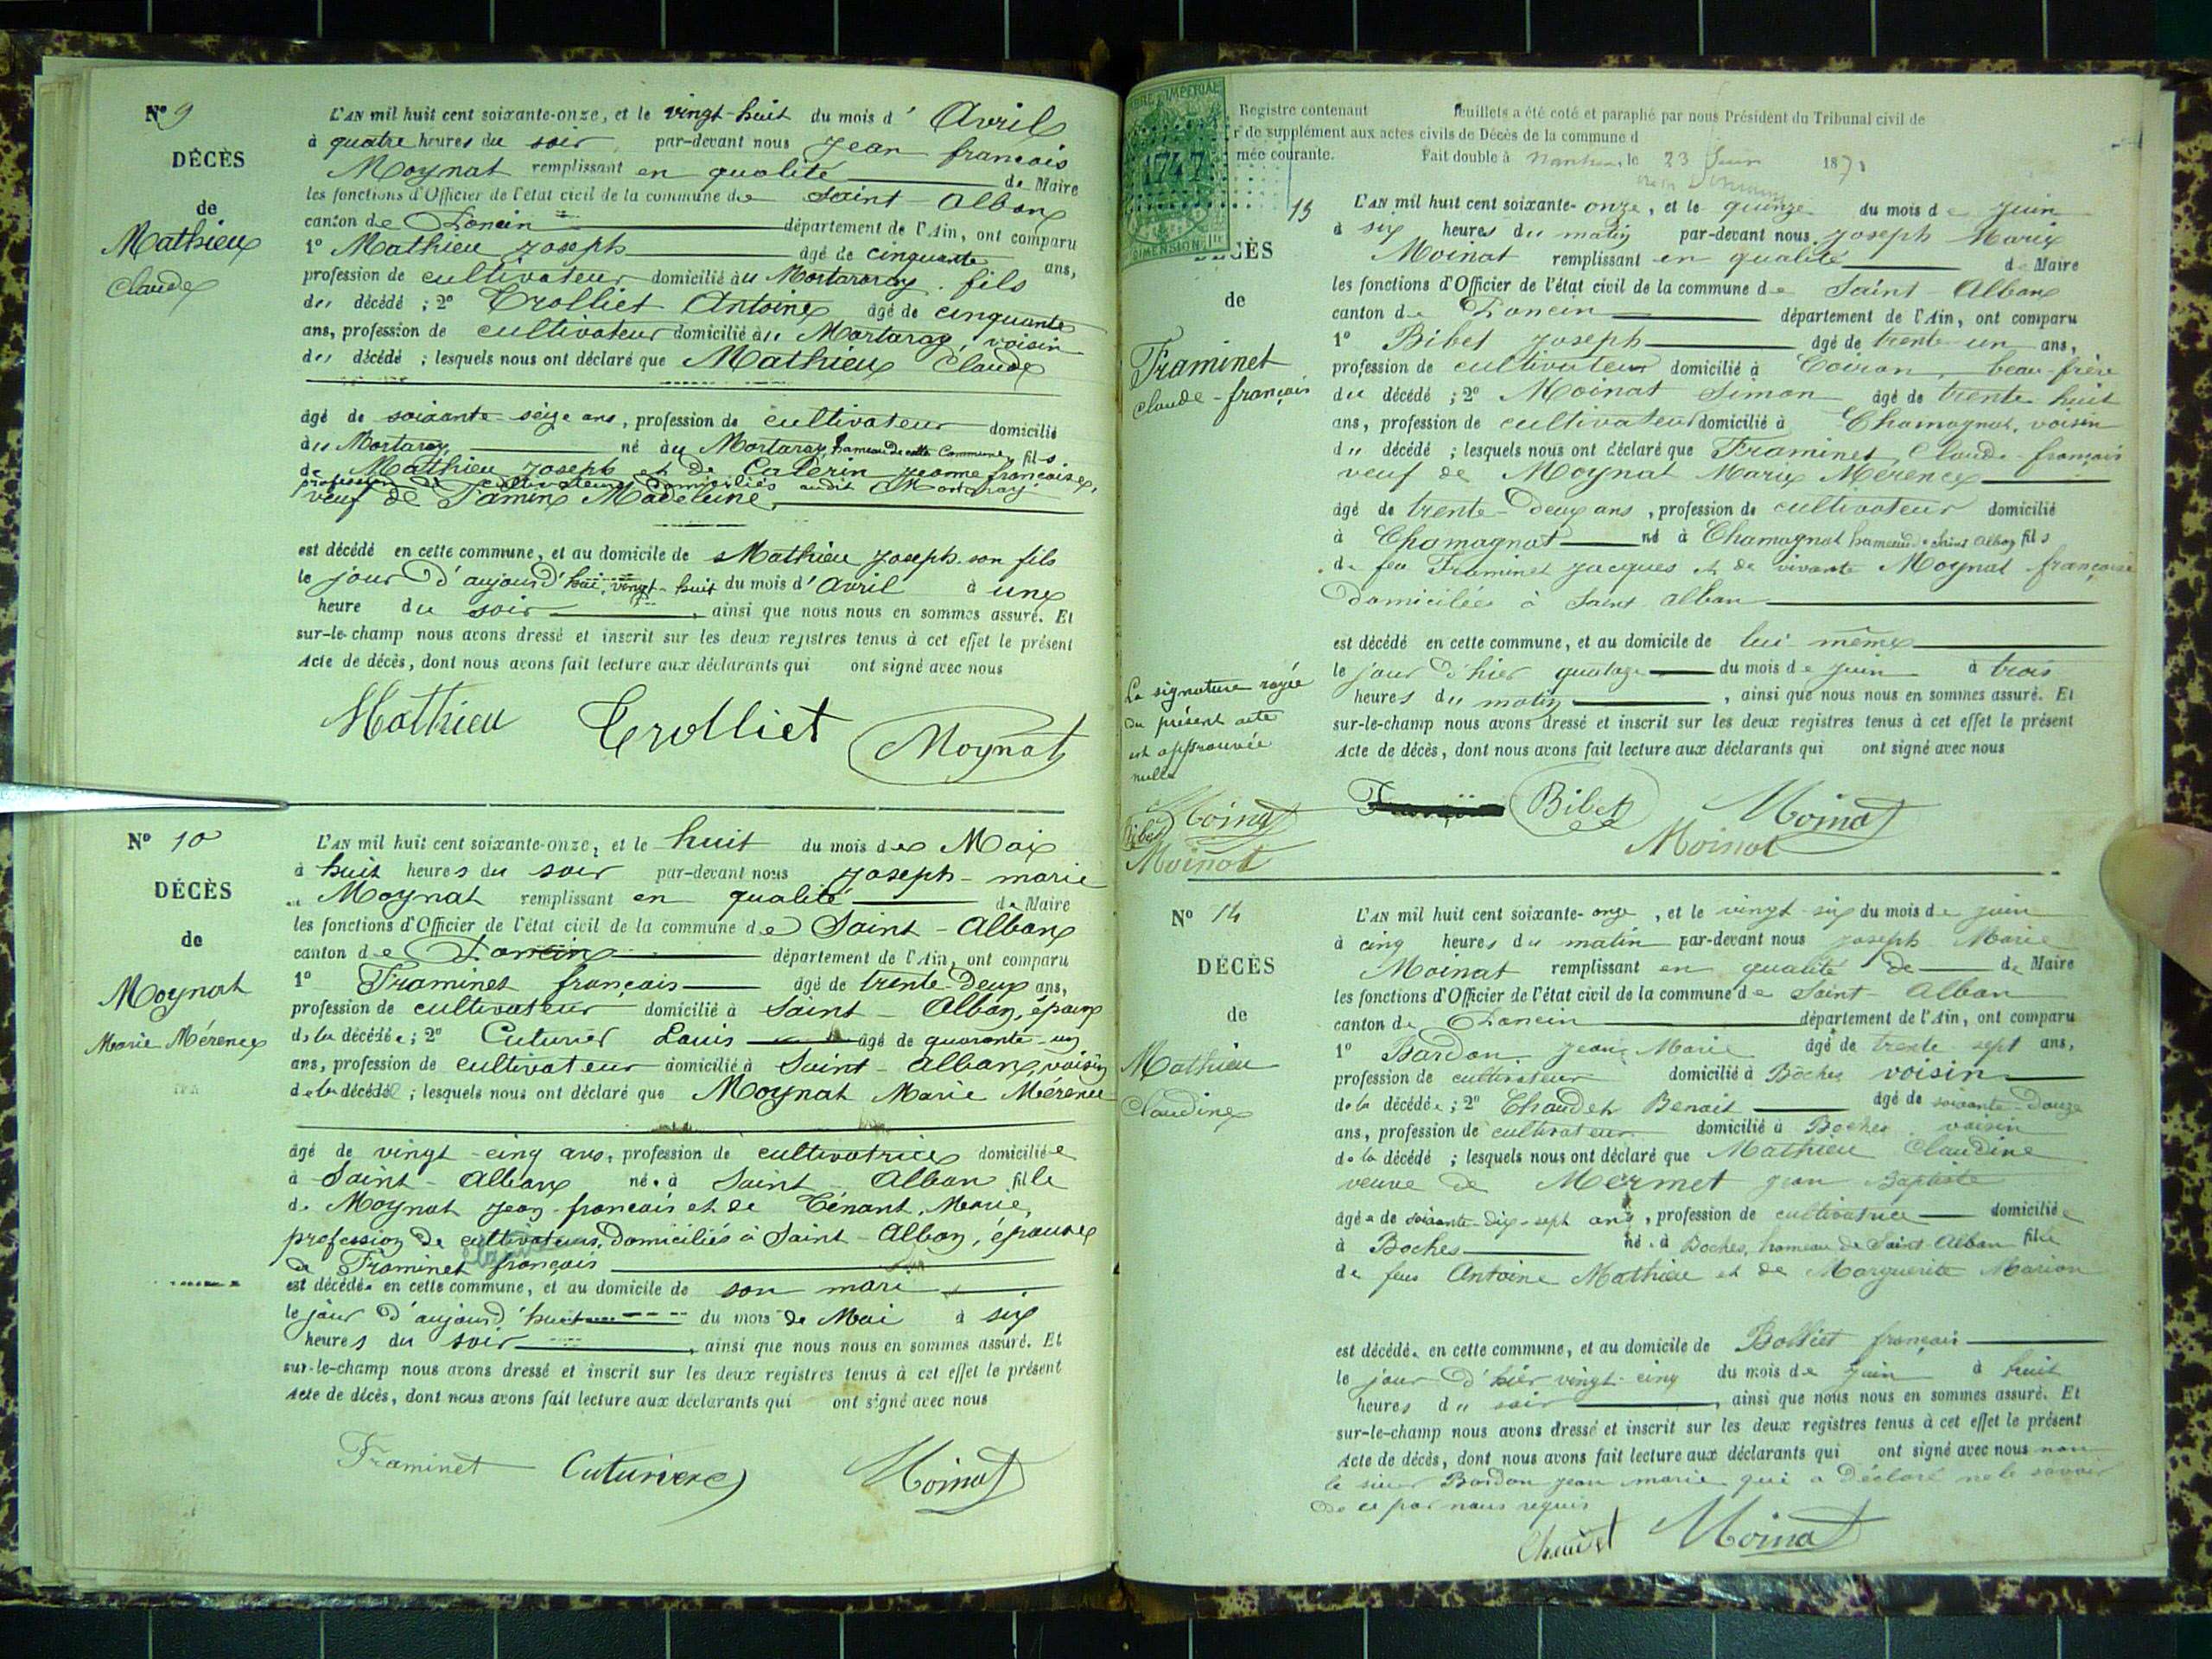 Nº 9
DÉCÈS
de
Mathieu
Claude
L'AN mil huit cent soixante-onze, et le vingt-huit du mois d'Avril
à quatre heures du soir par-devant nous Jean francois
Moynat remplissant en qualité de Maire
les fonctions d'Officier de l'état civil de la commune de Saint Alban
canton de Poncin département de l'Ain, ont comparu
1º Mathieu Joseph âgé de cinquante ans,
profession de cultivateur domicilié au Mortaray. fils
du décédé ; 2º Trolliet Antoine âgé de cinquante
ans, profession de cultivateur domicilié au Mortaray, voisin
du décédé ; lesquels nous ont déclaré que Mathieu Claude
âgé de soixante-seize ans, profession de cultivateur domicilié
au Mortaray né au Mortaray hameau de cette Commune, fils
de Mathieu Joseph et de Caterin Jeanne françoise,
profession de cultivateurs domiciliés audit Mortaray
veuf de Tamin Madeleine
est décédé en cette commune, et au domicile de Mathieu Joseph son fils
le jour d'aujourd'hui, vingt-huit du mois d'Avril à une
heure du soir, ainsi que nous nous en sommes assuré. Et
sur-le-champ nous avons dressé et inscrit sur les deux registres tenus à cet effet le présent
Acte de décès, dont nous avons fait lecture aux déclarants qui ont signé avec nous
Mathieu Trolliet Moynat
Nº 10
DÉCÈS
de
Moynat
Marie Mérence
L'AN mil huit cent soixante-onze, et le huit du mois de Mai
à huit heures du soir par-devant nous Joseph-marie
Moynat remplissant en qualité de Maire
les fonctions d'Officier de l'état civil de la commune de Saint-Alban
canton de Poncin département de l'Ain, ont comparu
1º Framinet françois âgé de trente-deux ans,
profession de cultivateur domicilié à Saint-Alban, époux
de la décédée ; 2º Cuturier Louis âgé de quarante-un
ans, profession de cultivateur domicilié à Saint-Alban, voisin
de la décédé ; lesquels nous ont déclaré que Moynat Marie Mérence
âgé de vingt-cinq ans, profession de cultivatrice domiciliée
à Saint-Alban née à Saint-Alban fille
de Moynat Jean-francois et de Ténant, Marie,
profession de cultivateurs, domiciliés à Saint-Alban, épouse
de Framinet françois
est décédée en cette commune, et au domicile de son mari
le jour d'aujourd'huit du mois de Mai à six
heures du soir, ainsi que nous nous en sommes assuré. Et
sur-le-champ nous avons dressé et inscrit sur les deux registres tenus à cet effet le présent
Acte de décès, dont nous avons fait lecture aux déclarants qui ont signé avec nous
Framinet Cuturier Moinat
1747
Registre contenant feuillets a été coté et paraphé par nous Président du Tribunal civil de
de supplément aux actes civils de Décès de la commune d
née courante. Fait double à Nantua, le 23 Juin 1871
13
DÉCÈS
de
Framinet
Claude-françois
L'AN mil huit cent soixante-onze, et le quinze du mois de Juin
à six heures du matin par-devant nous Joseph Marie
Moinat remplissant en qualité de Maire
les fonctions d'Officier de l'état civil de la commune de Saint-Alban
canton de Poncin département de l'Ain, ont comparu
1º Bibet Joseph âgé de trente-un ans,
profession de cultivateur domicilié à Coiron, beau-frère
du décédé ; 2º Moinat Simon âgé de trente huit
ans, profession de cultivateur domicilié à Chamagnat, voisin
du décédé ; lesquels nous ont déclaré que Framinet, Claude-françois
veuf de Moynat Marie Mérence
âgé de trente-deux ans, profession de cultivateur domicilié
à Chamagnat né à Chamagnat hameau de Saint Alban fils
de feu Framinet Jacques et de vivante Moynat françoise
domiciliées à Saint alban
est décédé en cette commune, et au domicile de lui-même
le jour d'hier quatorze du mois de Juin à trois
heures du matin, ainsi que nous nous en sommes assuré. Et
sur-le-champ nous avons dressé et inscrit sur les deux registres tenus à cet effet le présent
Acte de décès, dont nous avons fait lecture aux déclarants qui ont signé avec nous
La signature rayée
du présent acte
est approuvée
nulle
Moinat
Bibet
Moinat
Bibet Moinat
Moinat
Nº 14
DÉCÈS
de
Mathieu
Claudine
L'AN mil huit cent soixante-onze, et le vingt-six du mois de juin
à cinq heures du matin par-devant nous Joseph Marie
Moinat remplissant en qualité de de Maire
les fonctions d'Officier de l'état civil de la commune de Saint-Alban
canton de Poncin département de l'Ain, ont comparu
1º Bardon, Jean Marie âgé de trente-sept ans,
profession de cultivateur domicilié à Boches voisin
de la décédée ; 2º Chaudet Benoit âgé de soixante-douze
ans, profession de cultivateur domicilié à Boches voisin
de la décédé ; lesquels nous ont déclaré que Mathieu Claudine
veuve de Mermet Jean Baptiste
âgée de soixante-dix-sept ans, profession de cultivatrice domiciliée
à Boches née à Boches, hameau de Saint-Alban fille
de feus Antoine Mathieu et de Marguerite Marion
est décédée en cette commune, et au domicile de Bolliet françois
le jour d'hier vingt-cinq du mois de Juin à huit
heures du soir, ainsi que nous nous en sommes assuré. Et
sur-le-champ nous avons dressé et inscrit sur les deux registres tenus à cet effet le présent
Acte de décès, dont nous avons fait lecture aux déclarants qui ont signé avec nous non
le sieur Bardon Jean marie qui a déclaré ne le savoir
de ce par nous requis
Chaudet Moinat